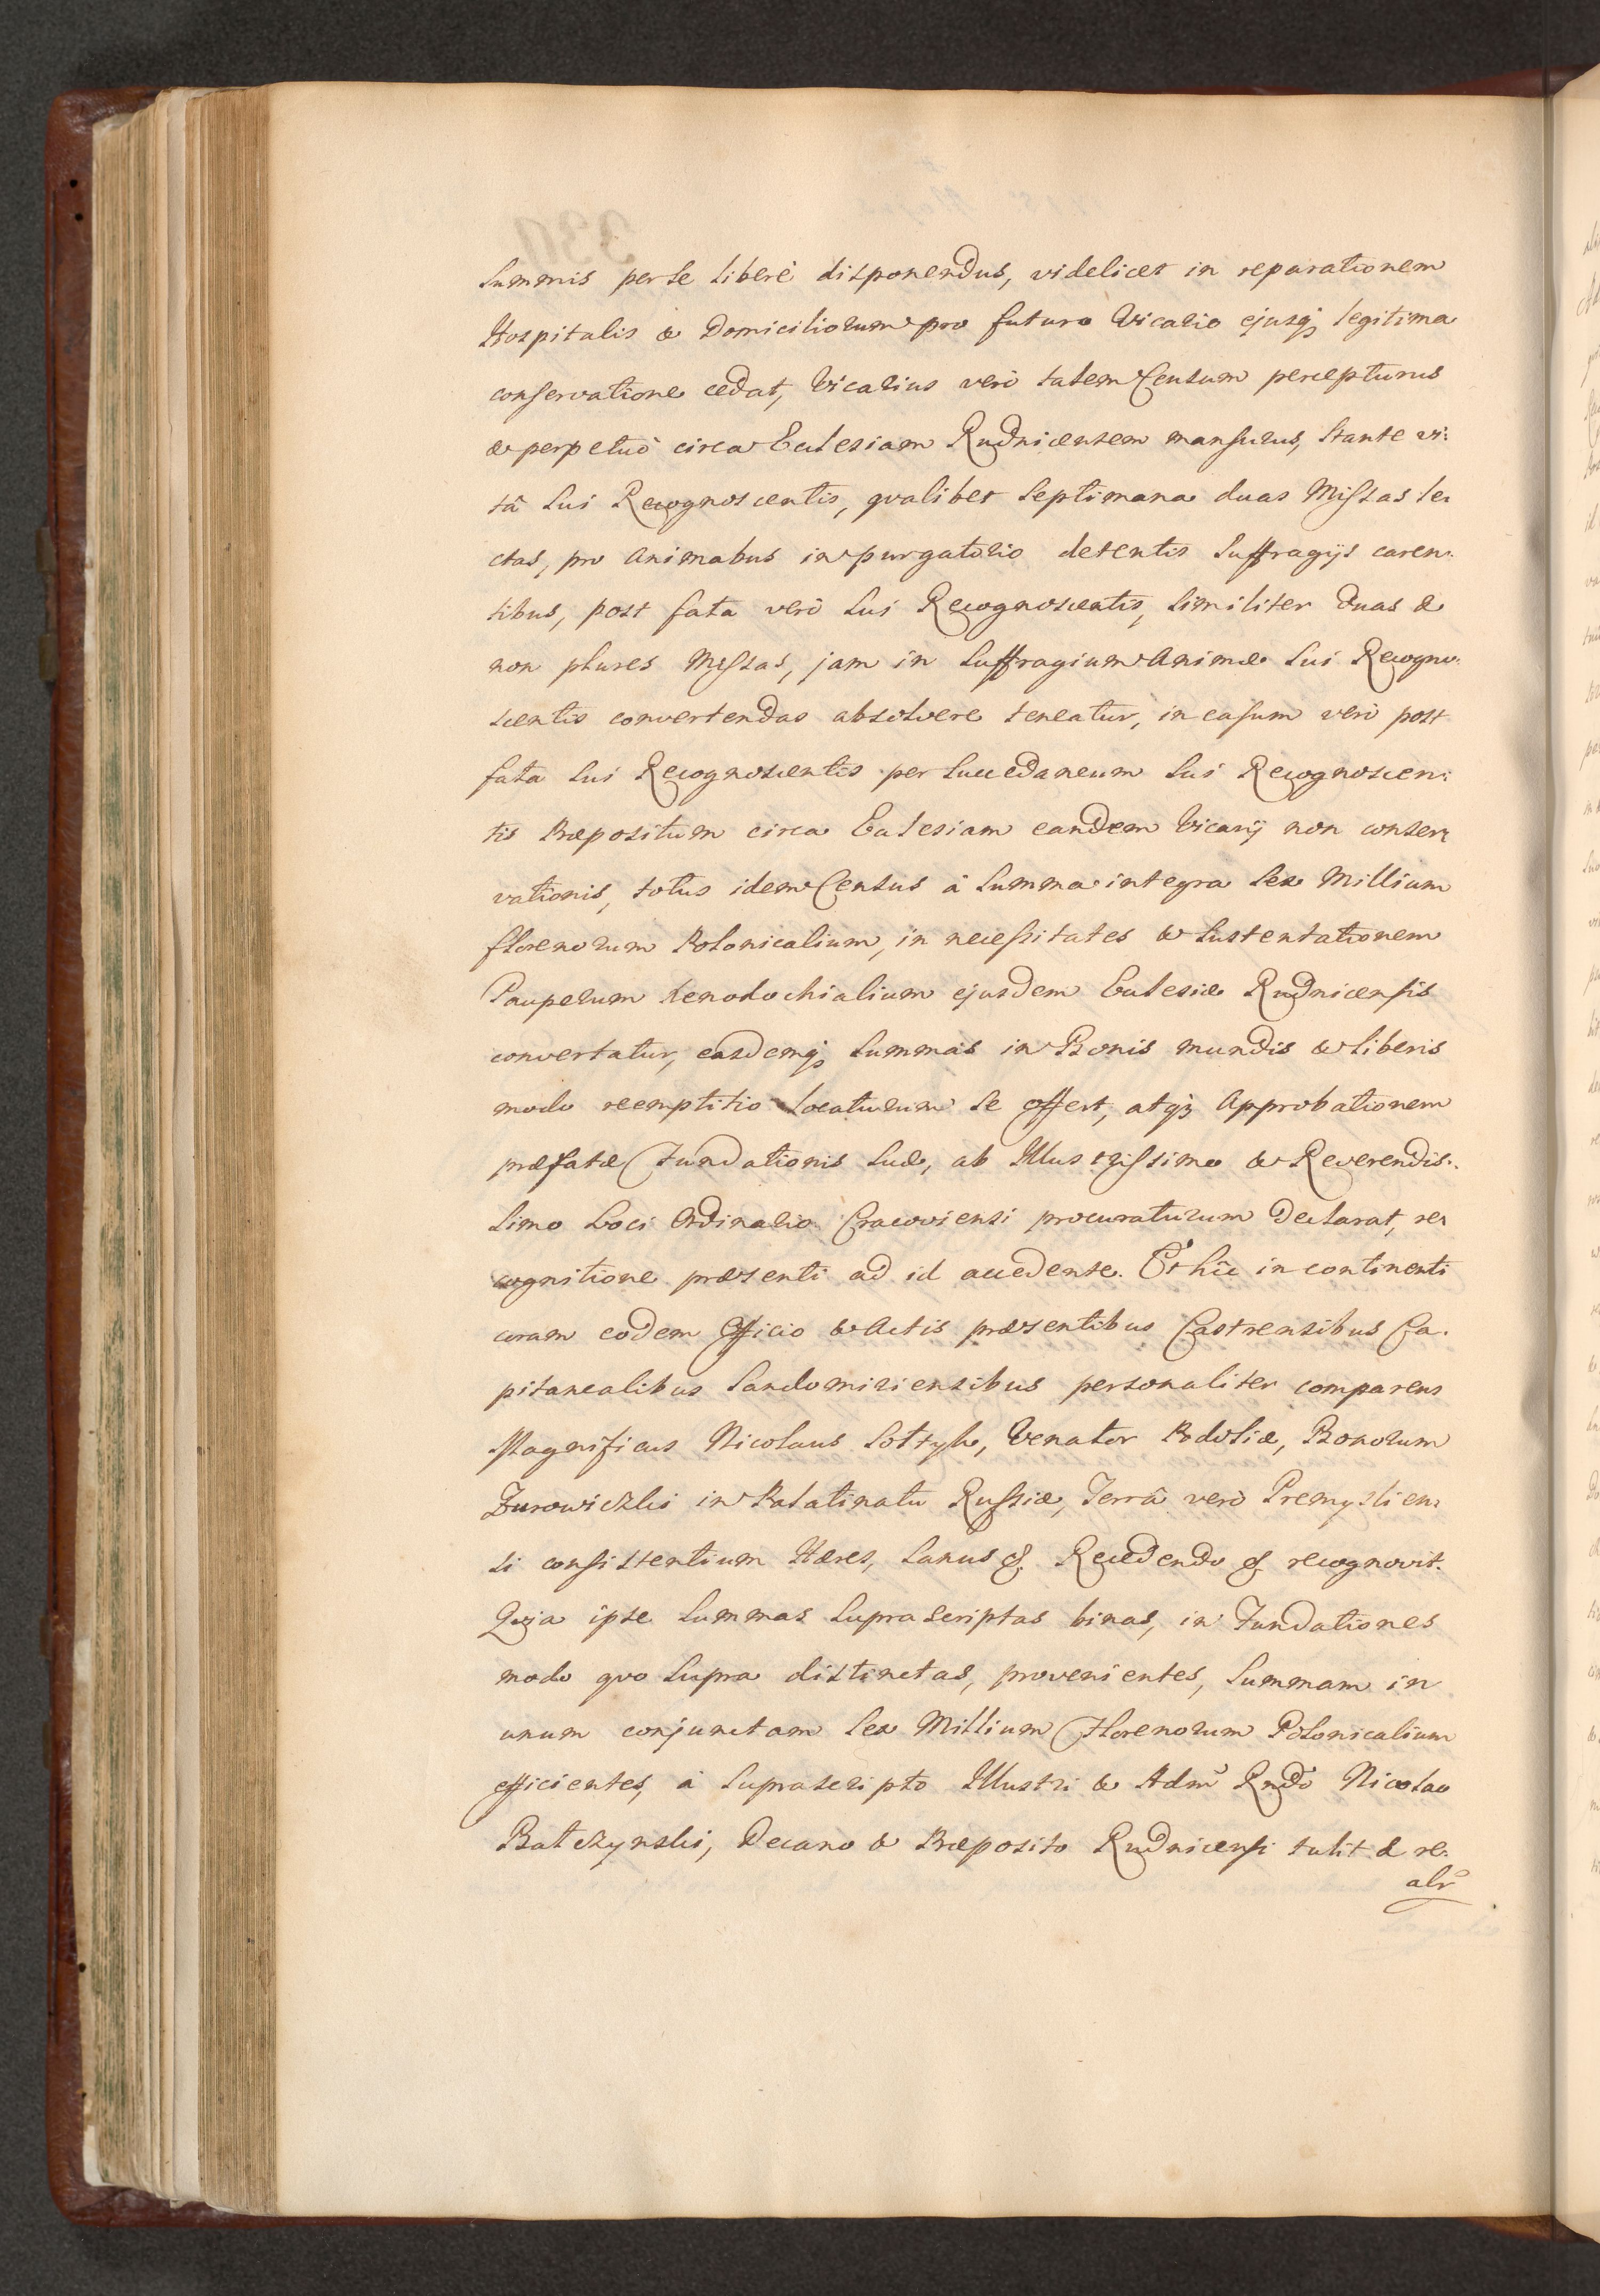 Summis per se liberè disponendus, videlicet in reparationem
Hospitalis & Domiciliorum pro futuro Vicario ejusq; legitima
conservatione cedat, Vicarius verò talem Censum percepturus
& perpetuò circa Ecclesiam Rudnicensem mansurus, stante vi:
tâ sui Recognoscentis, qvalibet septimana duas Missas le:
ctas, pro animabus in purgatorio detentis suffragijs caren:
tibus, post fata verò sui Recognoscentis, similiter duas &
non plures Missas, jam in suffragium Animæ sui Recogno:
scentis convertendas absolvere teneatur, in casum verò post
fata sui Recognoscentis per succedaneum sui Recognoscen:
tis Præpositum circa Ecclesiam eandem Vicarij non conser:
vationis, totus idem Census à summa integra sex Millium
florenorum Polonicalium, in necessitates & sustentationem
Pauperum Xenodochialium ejusdem Ecclesiæ Rudnicensis
convertatur, easdemq; summas in Bonis mundis & liberis
modo reemptitio locaturum se offert, atq; Approbationem
præfatæ Fundationis suæ, ab Illustrissimo & Reverendis:
simo Loci Ordinario Cracoviensi procuraturum declarat, re:
cognitione præsenti ad id accedente. Et hîc in continenti
coram eodem Officio & Actis præsentibus Castrensibus Ca:
pitanealibus Sandomiriensibus personaliter comparens
Magnificus Nicolaus Sołtyk, Venator Podoliæ, Bonorum
Zurowiczki in Palatinatu Russiæ, Terrâ verò Premyslien:
si consistentium Hæres, sanus &. Recedendo & recognovit.
Qvia ipse summas suprascriptas binas, in Fundationes
modo qvo supra distinctas, provenientes, summam in
unum conjunctam sex Millium Florenorum Polonicalium
efficientes, à suprascripto Illustri & Adm̃ Rñdo Nicolao
Bałczynski, Decano & Præposito Rudnicensi tulit & re:
alr̃